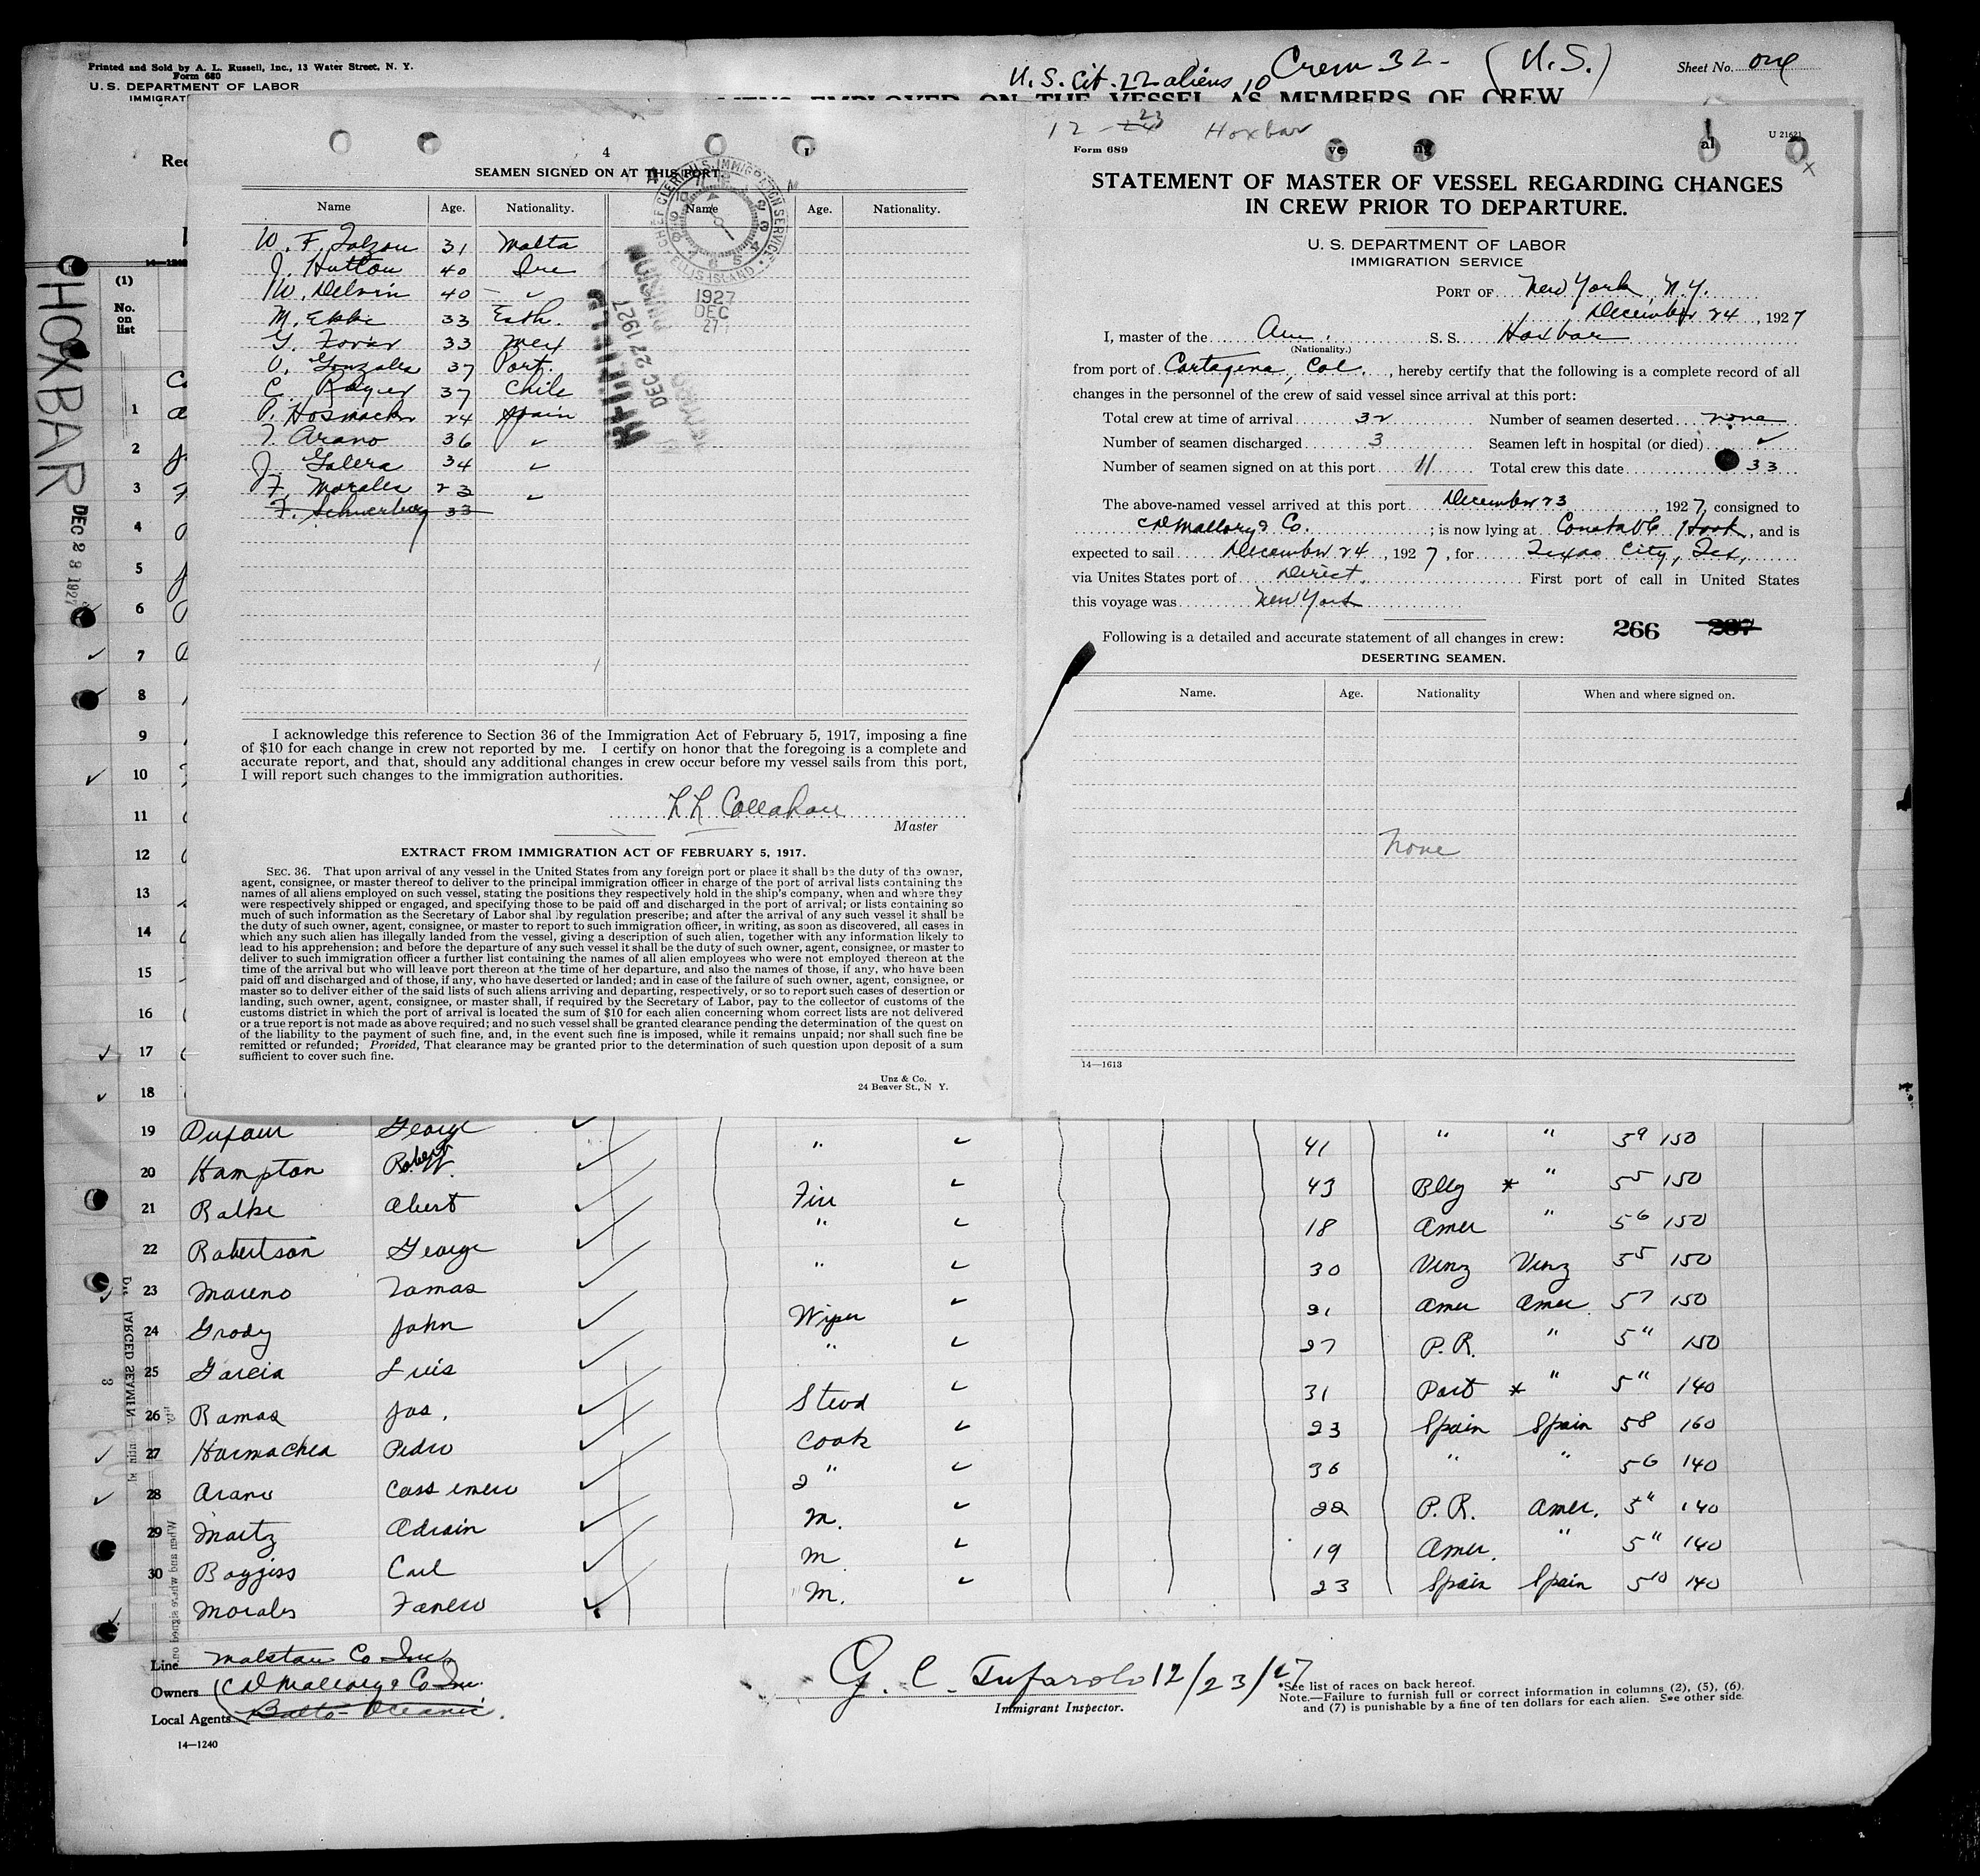 Printed and Sold by A. L. Russell, Inc., 13 Water Street, N. Y.
Form 680
U. S. DEPARTMENT OF LABOR
IMMIGRAT
U.S. Cit. 22 aliens 10 Crew 32 - (U.S.)
Sheet No. one
EMPLOYED ON THE VESSEL AS MEMBERS OF CREW
HOXBAR
DEC 23 1927
(1)
No.
on
list
4
SEAMEN SIGNED ON AT THIS PORT.
Name Age. Nationality. Name Age. Nationality.
W. F. Falzon 31 Malta
J. Hutton 40 Ire
W. Delvin 40 - ✓
M. Ekki 33 Esth.
G. Tovar 33 Mex
O. Gonzales 37 Port.
C. 37 Chile
P. 24 Spain
T. Arano 36 ✓
J. Galera 34 ✓
F. Morales 23 ✓
F. 33
CHIEF CLERK U.S. IMMIGRATION SERVICE
ELLIS ISLAND
1927
DEC
27
DEC 27 1927
DIVISION
I acknowledge this reference to Section 36 of the Immigration Act of February 5, 1917, imposing a fine
of $10 for each change in crew not reported by me. I certify on honor that the foregoing is a complete and
accurate report, and that, should any additional changes in crew occur before my vessel sails from this port,
I will report such changes to the immigration authorities.
Callahan
Master
EXTRACT FROM IMMIGRATION ACT OF FEBRUARY 5, 1917.
SEC. 36. That upon arrival of any vessel in the United States from any foreign port or place it shall be the duty of the owner,
agent, consignee, or master thereof to deliver to the principal immigration officer in charge of the port of arrival lists containing the
names of all aliens employed on such vessel, stating the positions they respectively hold in the ship's company, when and where they
were respectively shipped or engaged, and specifying those to be paid off and discharged in the port of arrival; or lists containing so
much of such information as the Secretary of Labor shal lby regulation prescribe; and after the arrival of any such vessel it shall be
the duty of such owner, agent, consignee, or master to report to such immigration officer, in writing, as soon as discovered, all cases in
which any such alien has illegally landed from the vessel, giving a description of such alien, together with any information likely to
lead to his apprehension; and before the departure of any such vessel it shall be the duty of such owner, agent, consignee, or master to
deliver to such immigration officer a further list containing the names of all alien employees who were not employed thereon at the
time of the arrival but who will leave port thereon at the time of her departure, and also the names of those, if any, who have been
paid off and discharged and of those, if any, who have deserted or landed; and in case of the failure of such owner, agent, consignee, or
master so to deliver either of the said lists of such aliens arriving and departing, respectively, or so to report such cases of desertion or
landing, such owner, agent, consignee, or master shall, if required by the Secretary of Labor, pay to the collector of customs of the
customs district in which the port of arrival is located the sum of $10 for each alien concerning whom correct lists are not delivered
or a true report is not made as above required; and no such vessel shall be granted clearance pending the determination of the quest on
of the liability to the payment of such fine, and, in the event such fine is imposed, while it remains unpaid; nor shall such fine be
remitted or refunded; Provided, That clearance may be granted prior to the determination of such question upon deposit of a sum
sufficient to cover such fine.
Unz & Co.
24 Beaver St., N Y.
12 - 23 Hoxbar
Form 689
U 21621
STATEMENT OF MASTER OF VESSEL REGARDING CHANGES
IN CREW PRIOR TO DEPARTURE.
U. S. DEPARTMENT OF LABOR
IMMIGRATION SERVICE
PORT OF New York, N.Y.
December 24, 1927
I, master of the Am. S. S. Hoxbar
(Nationality.)
from port of Cartagena, Col., hereby certify that the following is a complete record of all
changes in the personnel of the crew of said vessel since arrival at this port:
Total crew at time of arrival 32 Number of seamen deserted none
Number of seamen discharged 3 Seamen left in hospital (or died) ✓
Number of seamen signed on at this port 11 Total crew this date 33
The above-named vessel arrived at this port December 23, 1927, consigned to
C D Mallory & Co.; is now lying at Constable Hook, and is
expected to sail December 24, 1927, for Texas City, Tex,
via Unites States port of Direct. First port of call in United States
this voyage was New York
Following is a detailed and accurate statement of all changes in crew: 266 267
DESERTING SEAMEN.
Name. Age. Nationality When and where signed on.
None
14—1613
1
2
3
4
5
6
7
8
9
10
11
12
13
14
15
16
17
18
19 Dufour George " ✓ 41 " " 59 150
20 Hampton Robert W. ✓ 43 Blg * " 55 150
21 Ralke Albert Fire ✓ 18 Amer " 56 150
22 Robertson George " ✓ 30 Venz Venz 55 150
23 Moreno Tomas " ✓ 21 Amer Amer 57 150
24 Grody John Wiper ✓ 27 P.R. " 5" 150
25 Garcia Luis " ✓ 31 Port * " 5" 140
26 Ramos Jos. Stwd ✓ 23 Spain Spain 58 160
27 Hormachea Pedro Cook ✓ 36 " " 56 140
28 Arano Cassimero 2 " ✓ 22 P.R. Amer. 5" 140
29 Martz Adrain M. ✓ 19 Amer. " 5" 140
30 Boggiss Carl M ✓ 23 Spain Spain 510 140
Morales M. ✓
Line Malstan Co Inc
Owners (C D Mallory & Co Inc.
Local Agents Balto Oceanic.
14—1240
G. C. Tufarolo 12/23/27
Immigrant Inspector.
*See list of races on back hereof.
Note.—Failure to furnish full or correct information in columns (2), (5), (6),
and (7) is punishable by a fine of ten dollars for each alien. See other side.